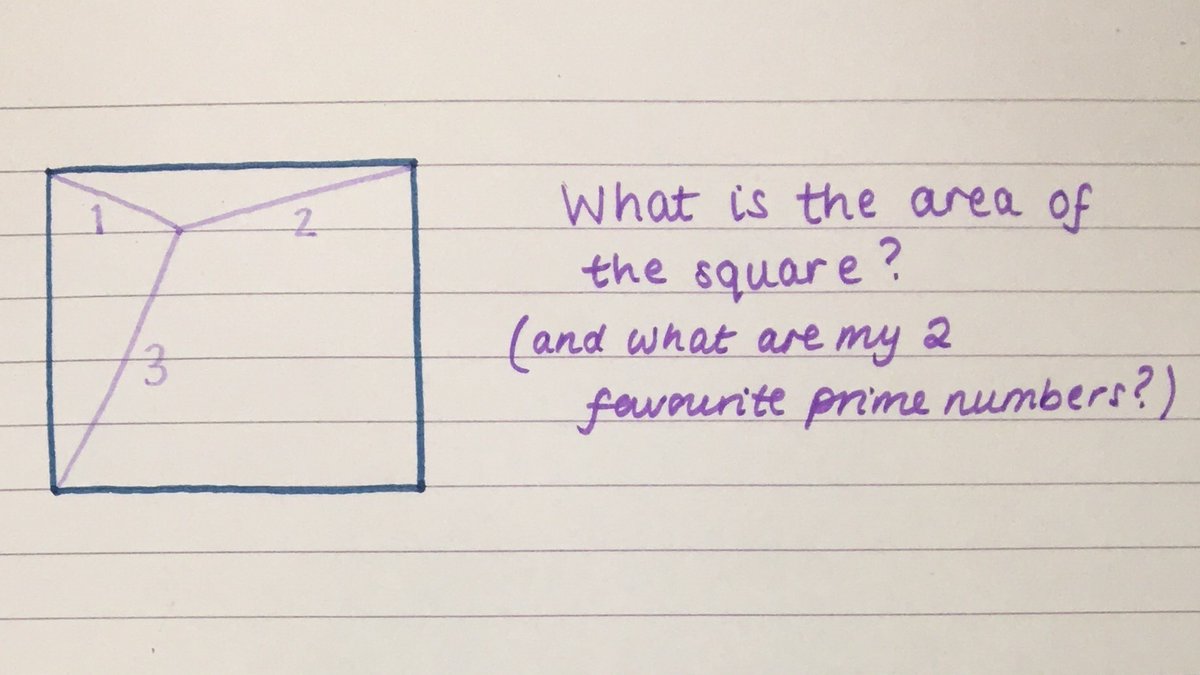 1
2
3
What is the area of
the square?
(and what are my 2
favourite prime numbers?)